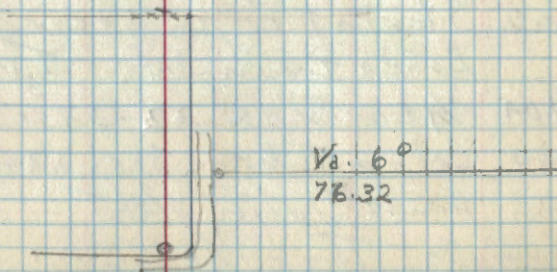 Va. 6°
76.32